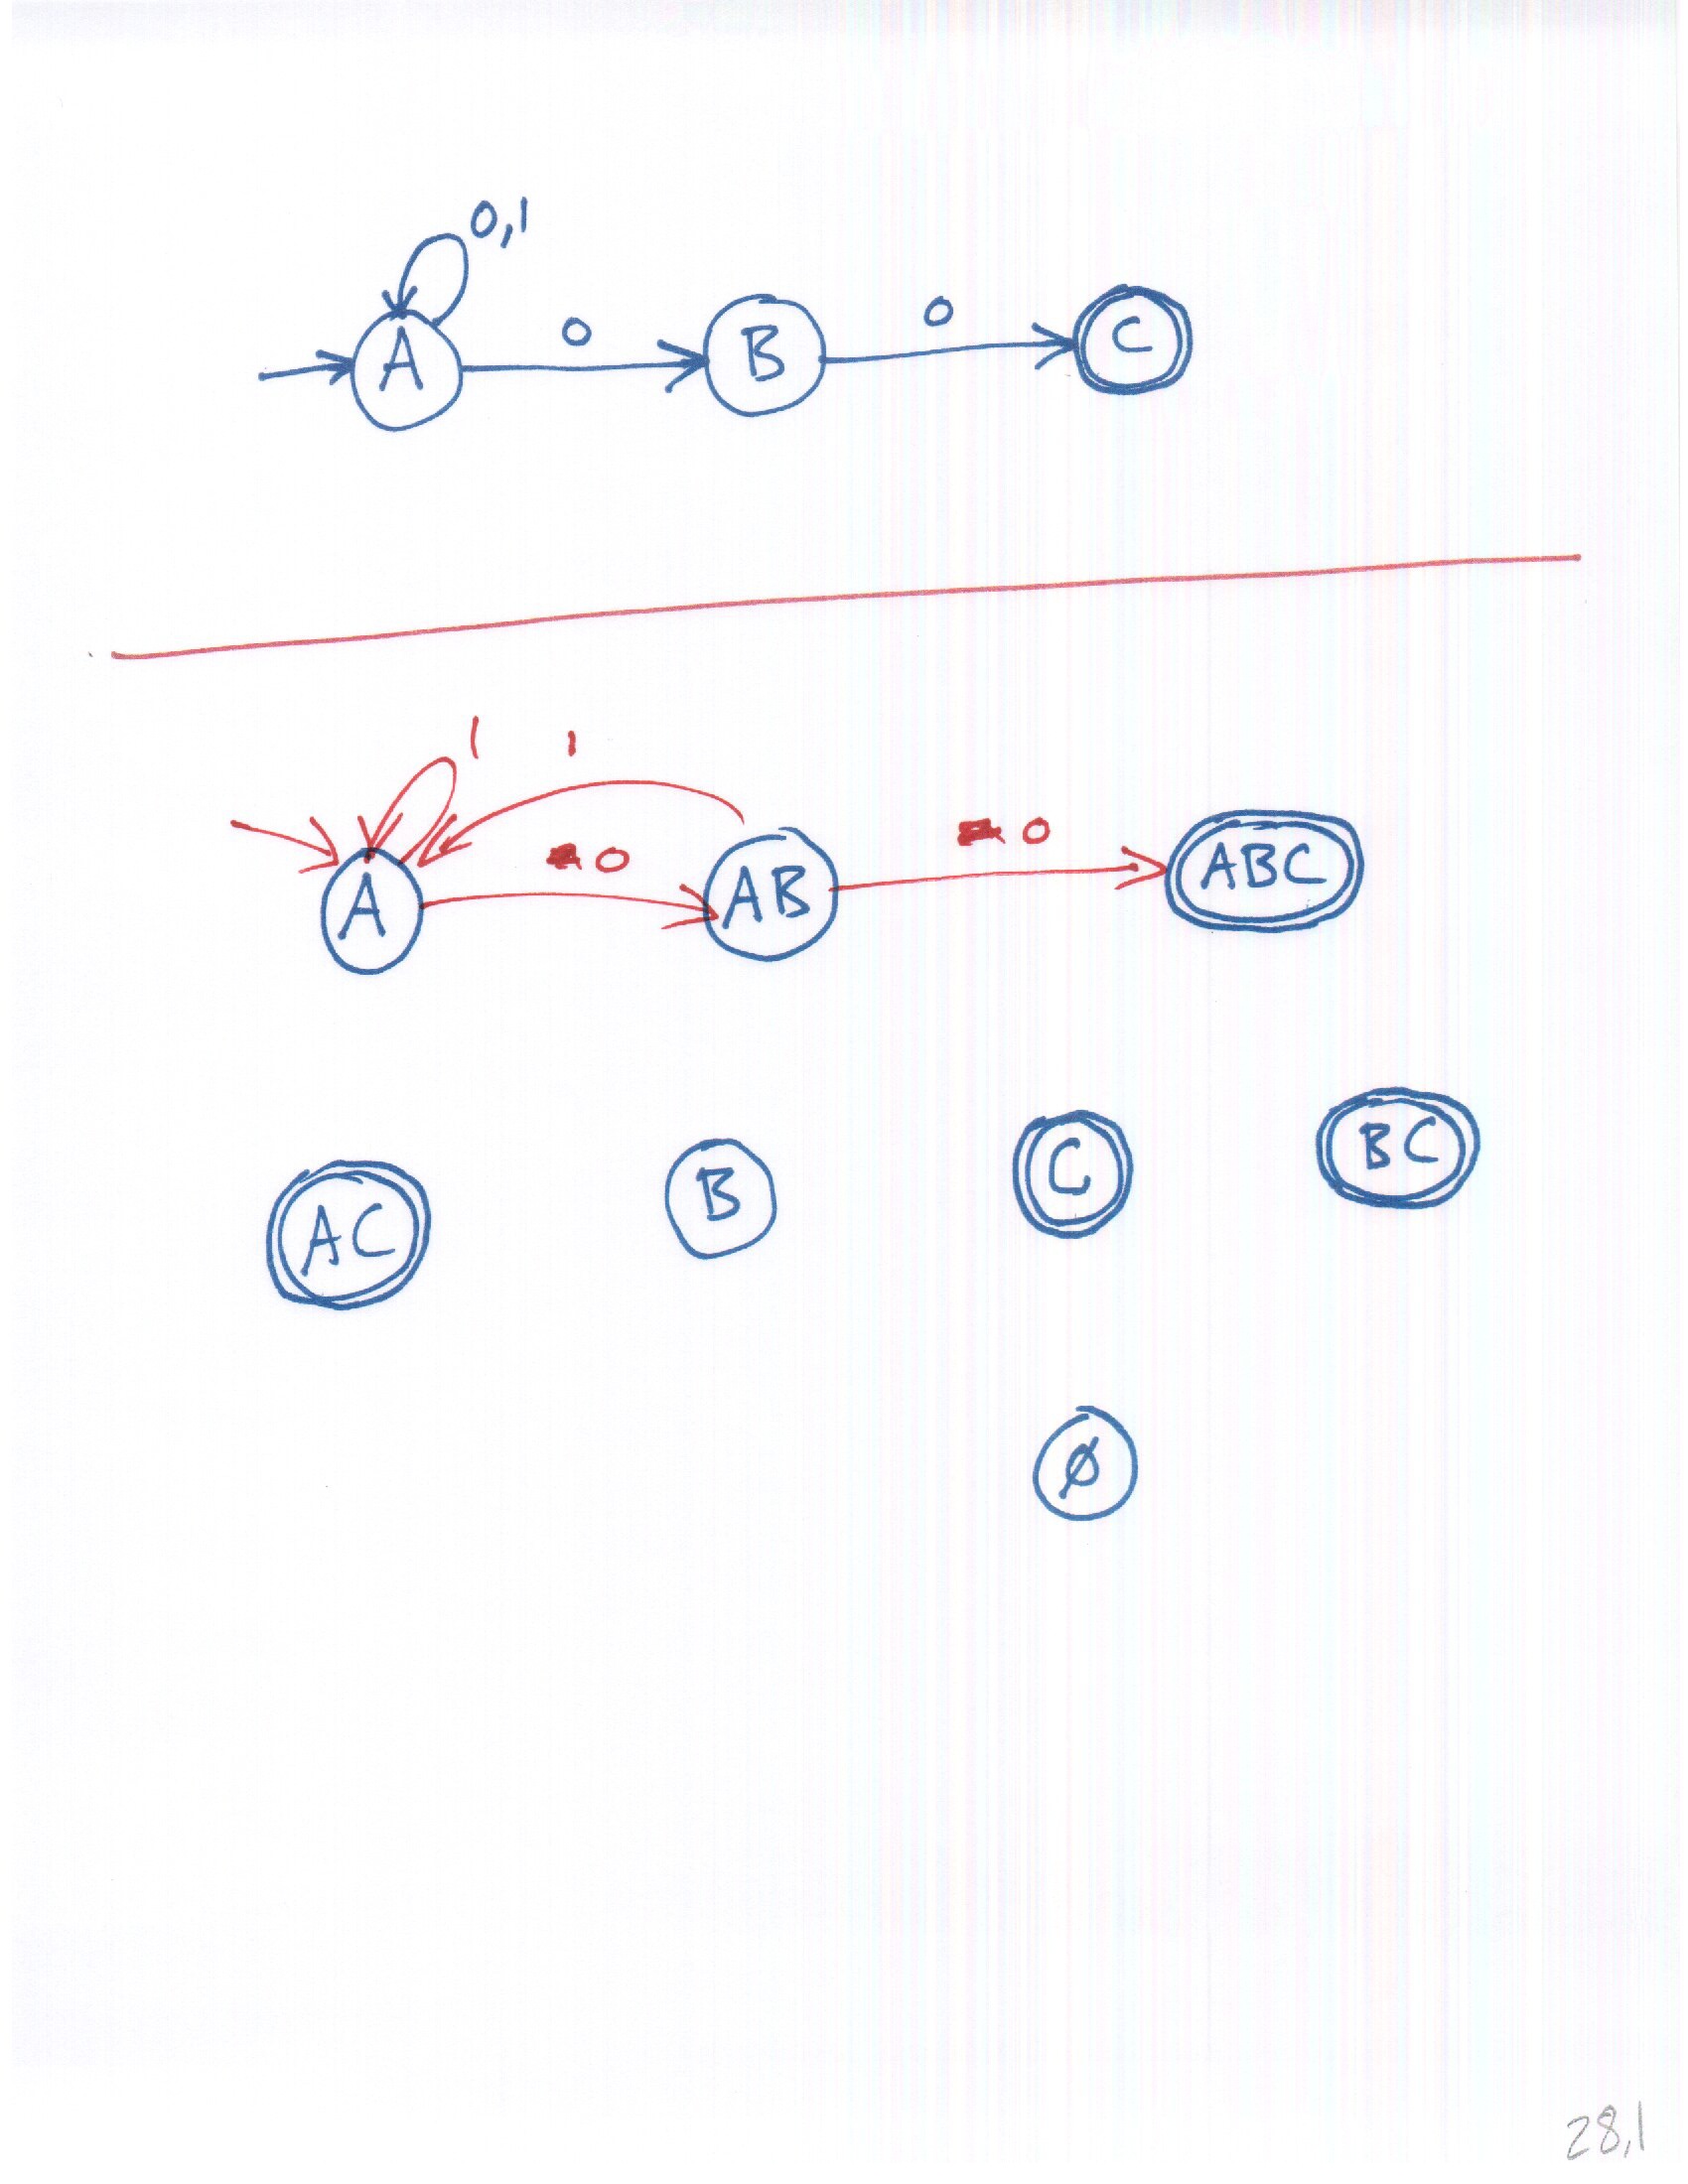 0,1
A 0 B 0 C
1 1
A 0 AB 0 ABC
AC B C BC
∅
28,1